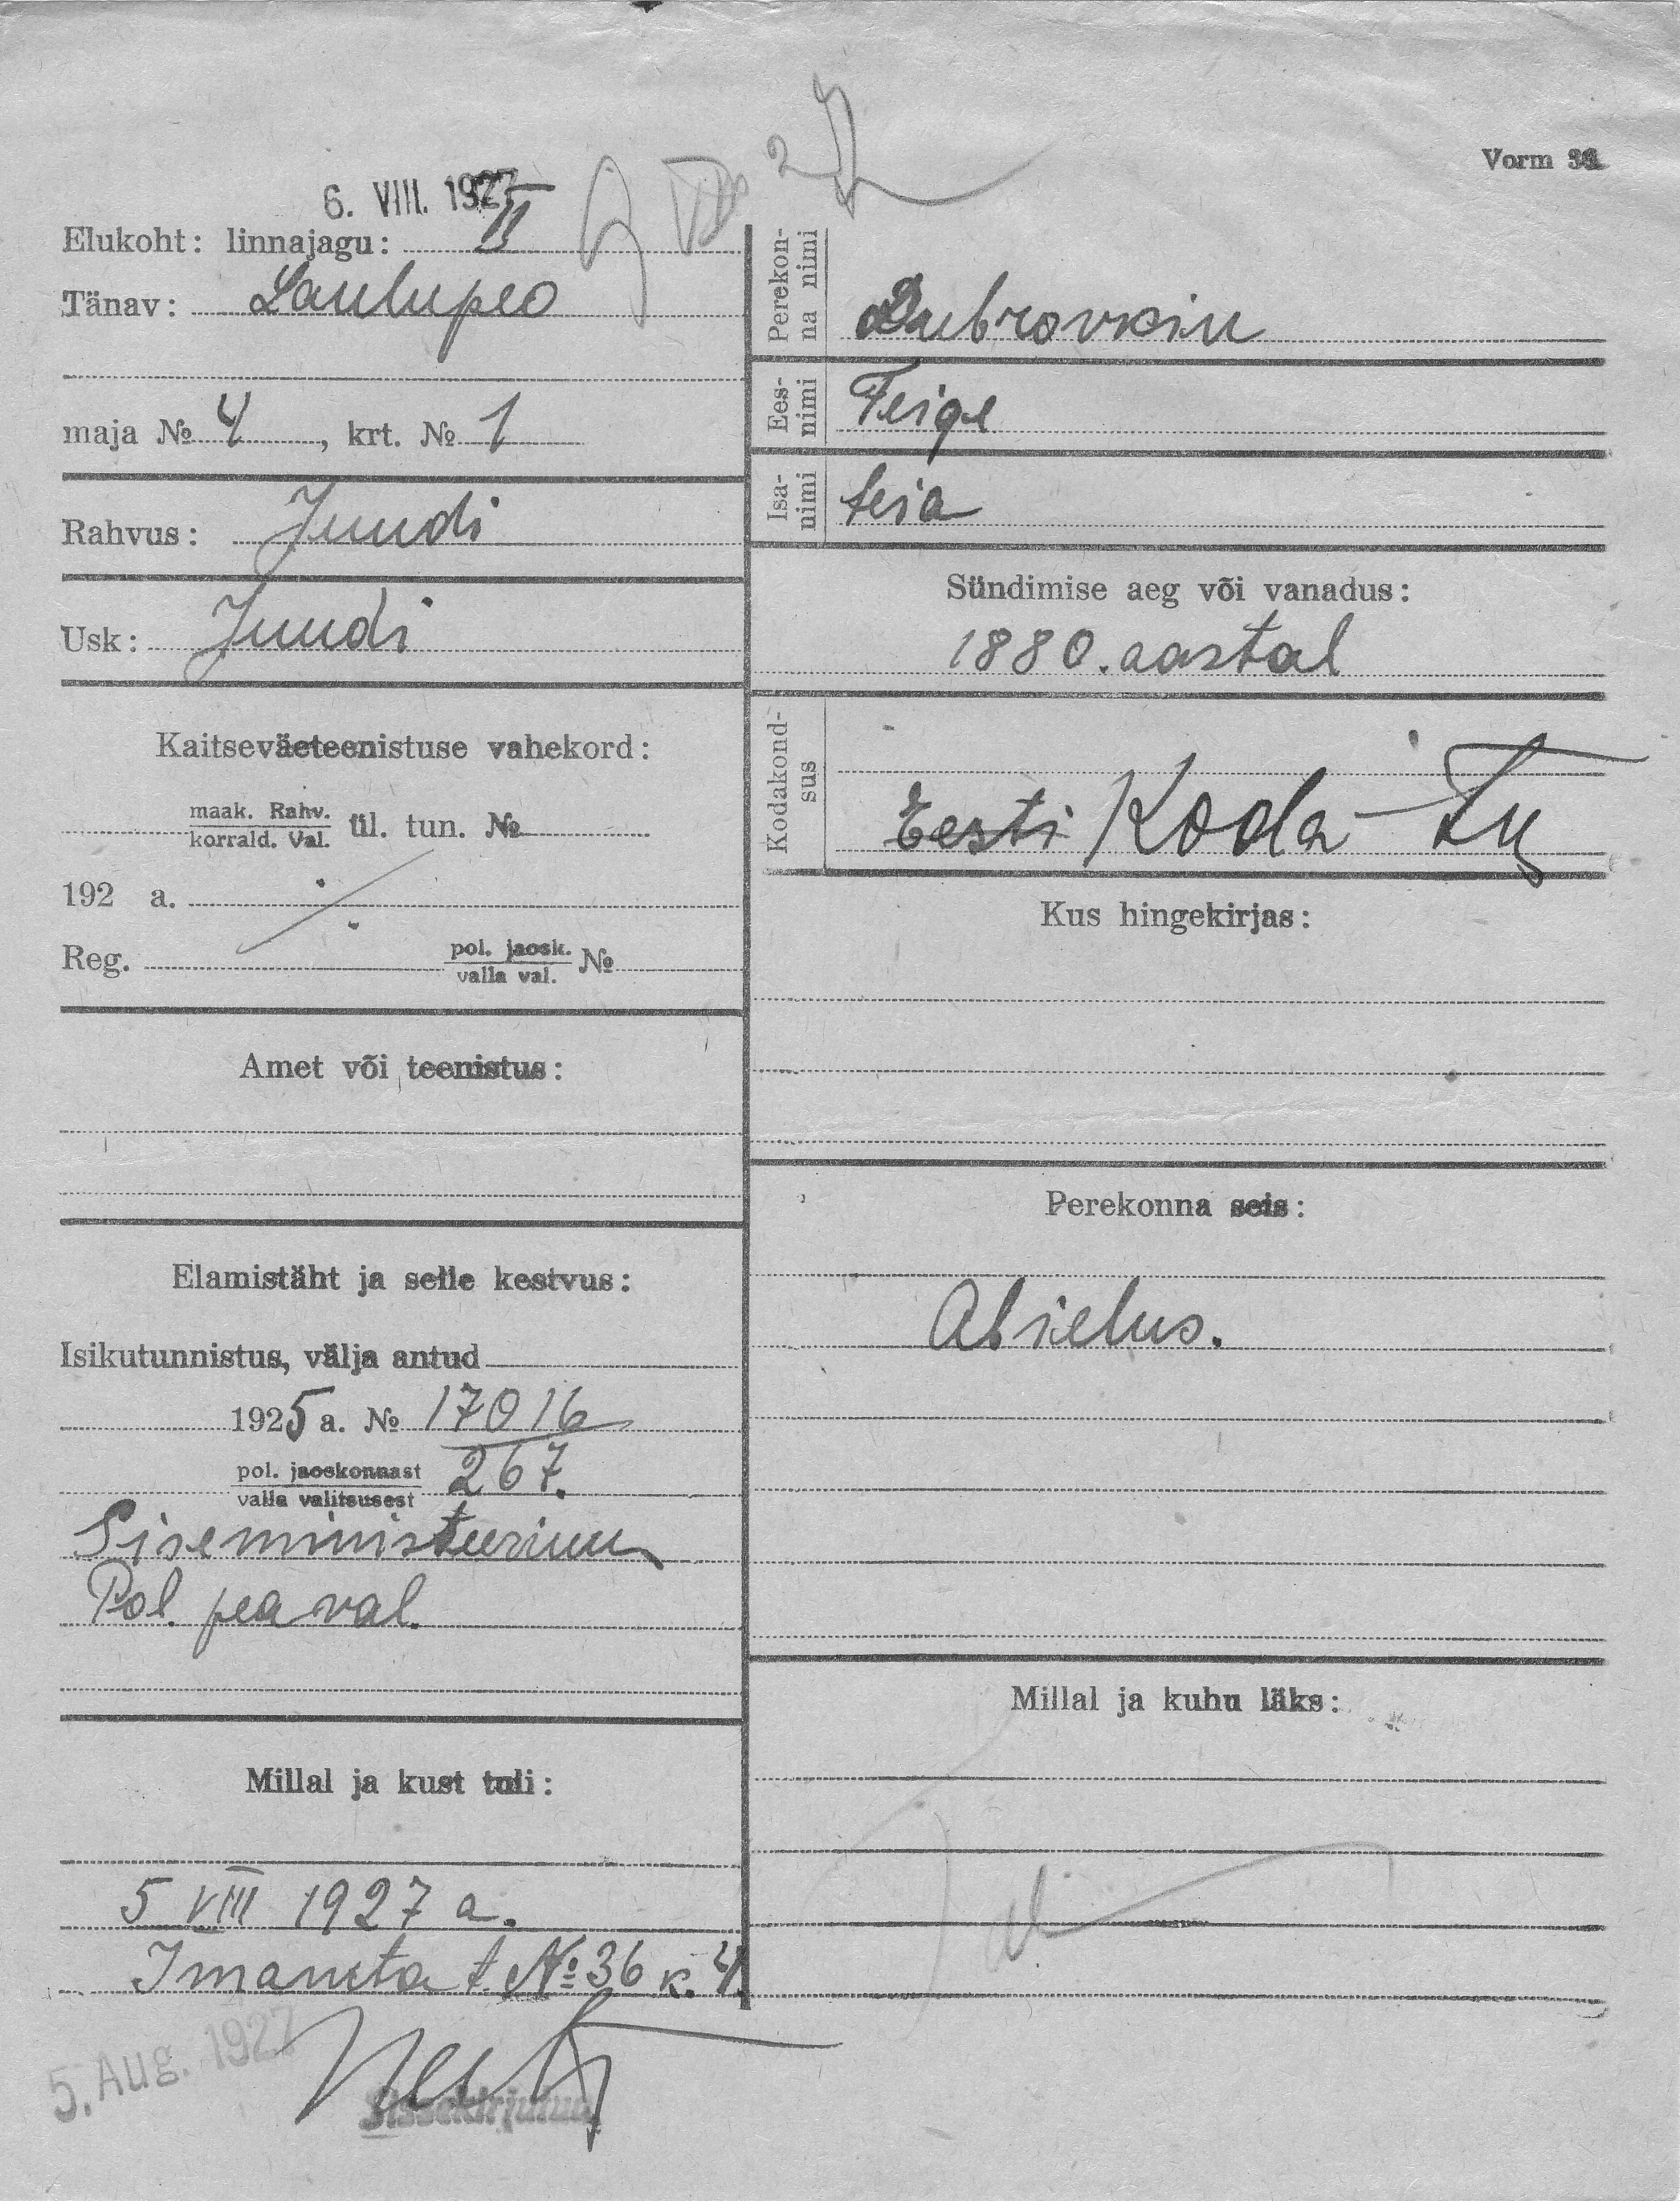 Vorm
6. VIII. 1927
Elukoht: linnajagu: II
Tänav: Laulupeo
maja № 4, krt. № 1
Rahvus: Juudi
Usk: Juudi
Kaitseväeteenistuse vahekord:
maak. Rahv.
korrald. Val. ül. tun. №
192 a.
Reg. pol. jaosk.
valla val. №
Amet või teenistus:
Elamistäht ja selle kestvus:
Isikutunnistus, välja antud
1925 a. № 17016
pol. jaoskonnast 267.
valla valitsusest
Siseministeerium
Pol. pea val.
Millal ja kust tuli:
5 VIII 1927 a.
Imanta t. № 36 k. 4.
5. Aug. 1927
Sissekirjutud
Perekon-
na nimi
Dubrovkin
Ees-
nimi
Feige
Isa-
nimi
Sündimise aeg või vanadus:
1880. aastal
Kodakond-
sus
Eesti Koda
Kus hingekirjas:
Perekonna seis:
Abielus.
Millal ja kuhu läks: